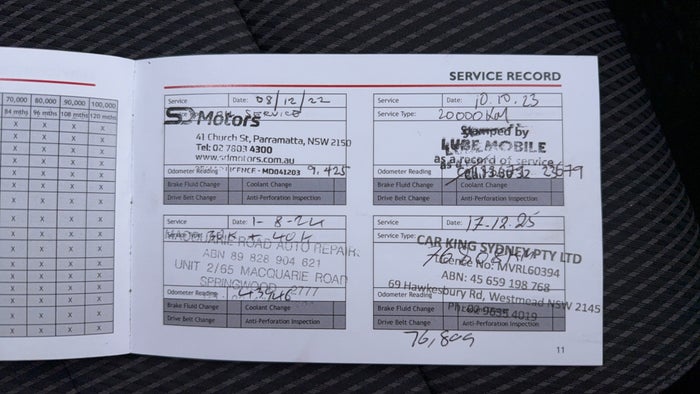 SERVICE RECORD
70,000 80,000 90,000 100,000
84 mths 96 mths 108 mths 120 mths
X X X X
X X X X
X X X X
X X X X
X X X X
X X X X
X X X X
X X X X
X X X X
X X X X
X X X X
X X X X
X X X X
Service Date: 08/12/22
Service
SD Motors
41 Church St, Parramatta, NSW 2150
Tel: 02 7803 4300
www.sdmotors.com.au
LICENCE - MD041203
Odometer Reading 9,425
Brake Fluid Change Coolant Change
Drive Belt Change Anti-Perforation Inspection
Service Date: 10.10.23
Service Type: 20000KM
Stamped by
LUBE MOBILE
as a record of service
Odometer Reading 23679
Brake Fluid Change Coolant Change
Drive Belt Change Anti-Perforation Inspection
Service Date: 1-8-24
Service Type: 30K + 40K
MACQUARIE ROAD AUTO REPAIRS
ABN 89 828 904 621
UNIT 2/65 MACQUARIE ROAD
SPRINGWOOD 2777
Odometer Reading 43946
Brake Fluid Change Coolant Change
Drive Belt Change Anti-Perforation Inspection
Service Date: 17-12-25
Service Type:
CAR KING SYDNEY PTY LTD
Licence No: MVRL60394
ABN: 45 659 198 768
69 Hawkesbury Rd, Westmead NSW 2145
Odometer Reading
Ph: 02 9635 4019
Brake Fluid Change Coolant Change
Drive Belt Change Anti-Perforation Inspection
76,809
11